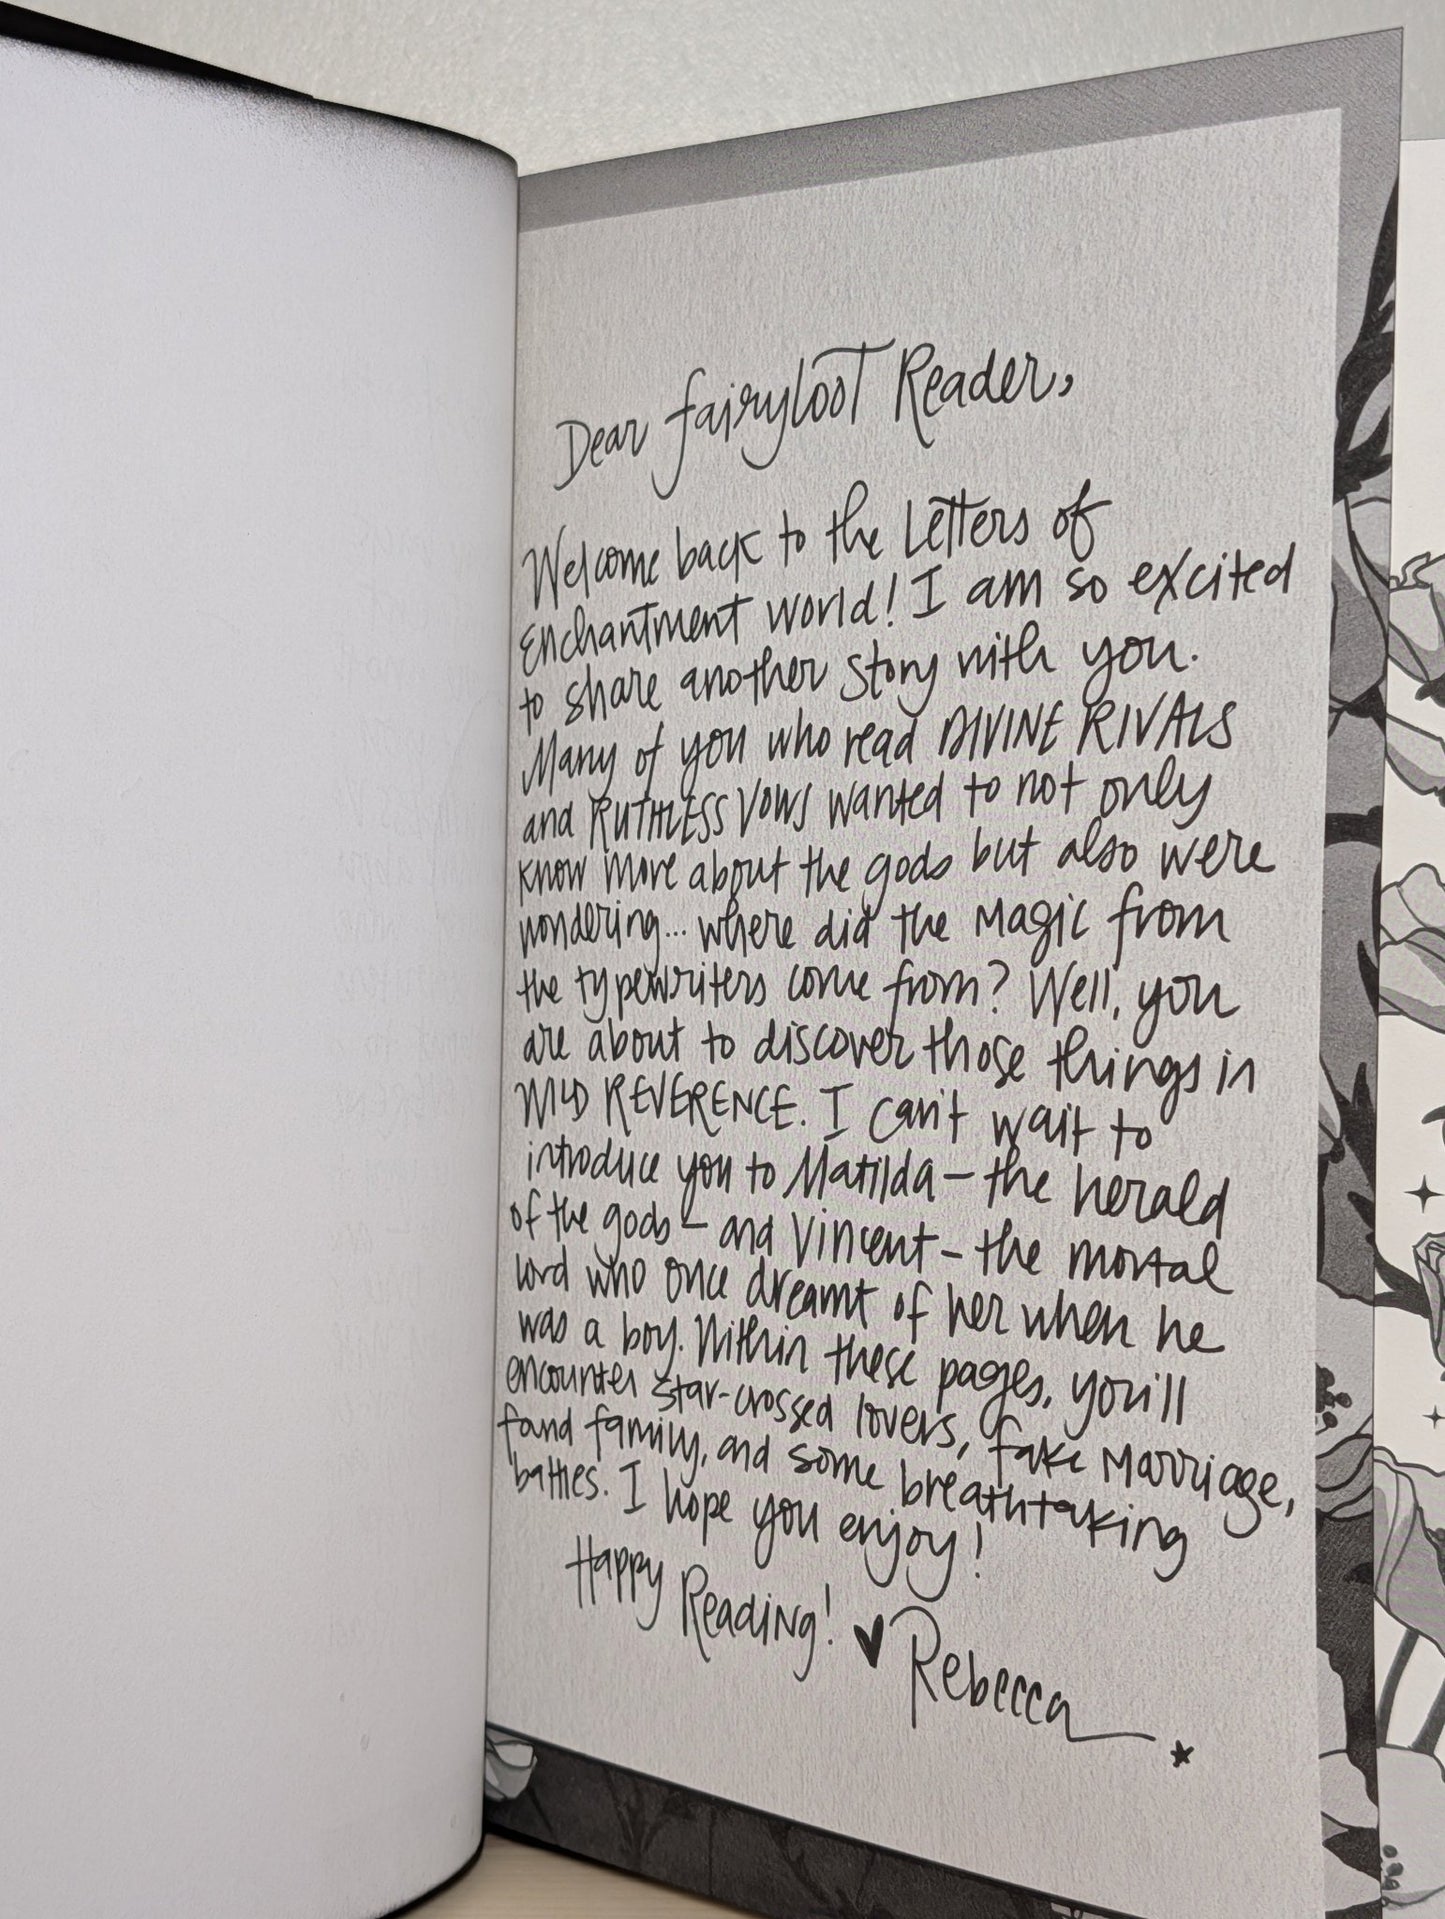 Dear Fairyloot Reader,
Welcome back to the Letters of
Enchantment world! I am so excited
to share another story with you.
Many of you who read DIVINE RIVALS
and RUTHLESS VOWS wanted to not only
know more about the gods but also were
wondering... where did the magic from
the typewriters come from? Well, you
are about to discover those things in
WILD REVERENCE. I can't wait to
introduce you to Matilda — the herald
of the gods — and Vincent — the mortal
lord who once dreamt of her when he
was a boy. Within these pages, you'll
encounter star-crossed lovers, fake marriage,
found family, and some breathtaking
battles. I hope you enjoy!
Happy Reading! ♥ Rebecca